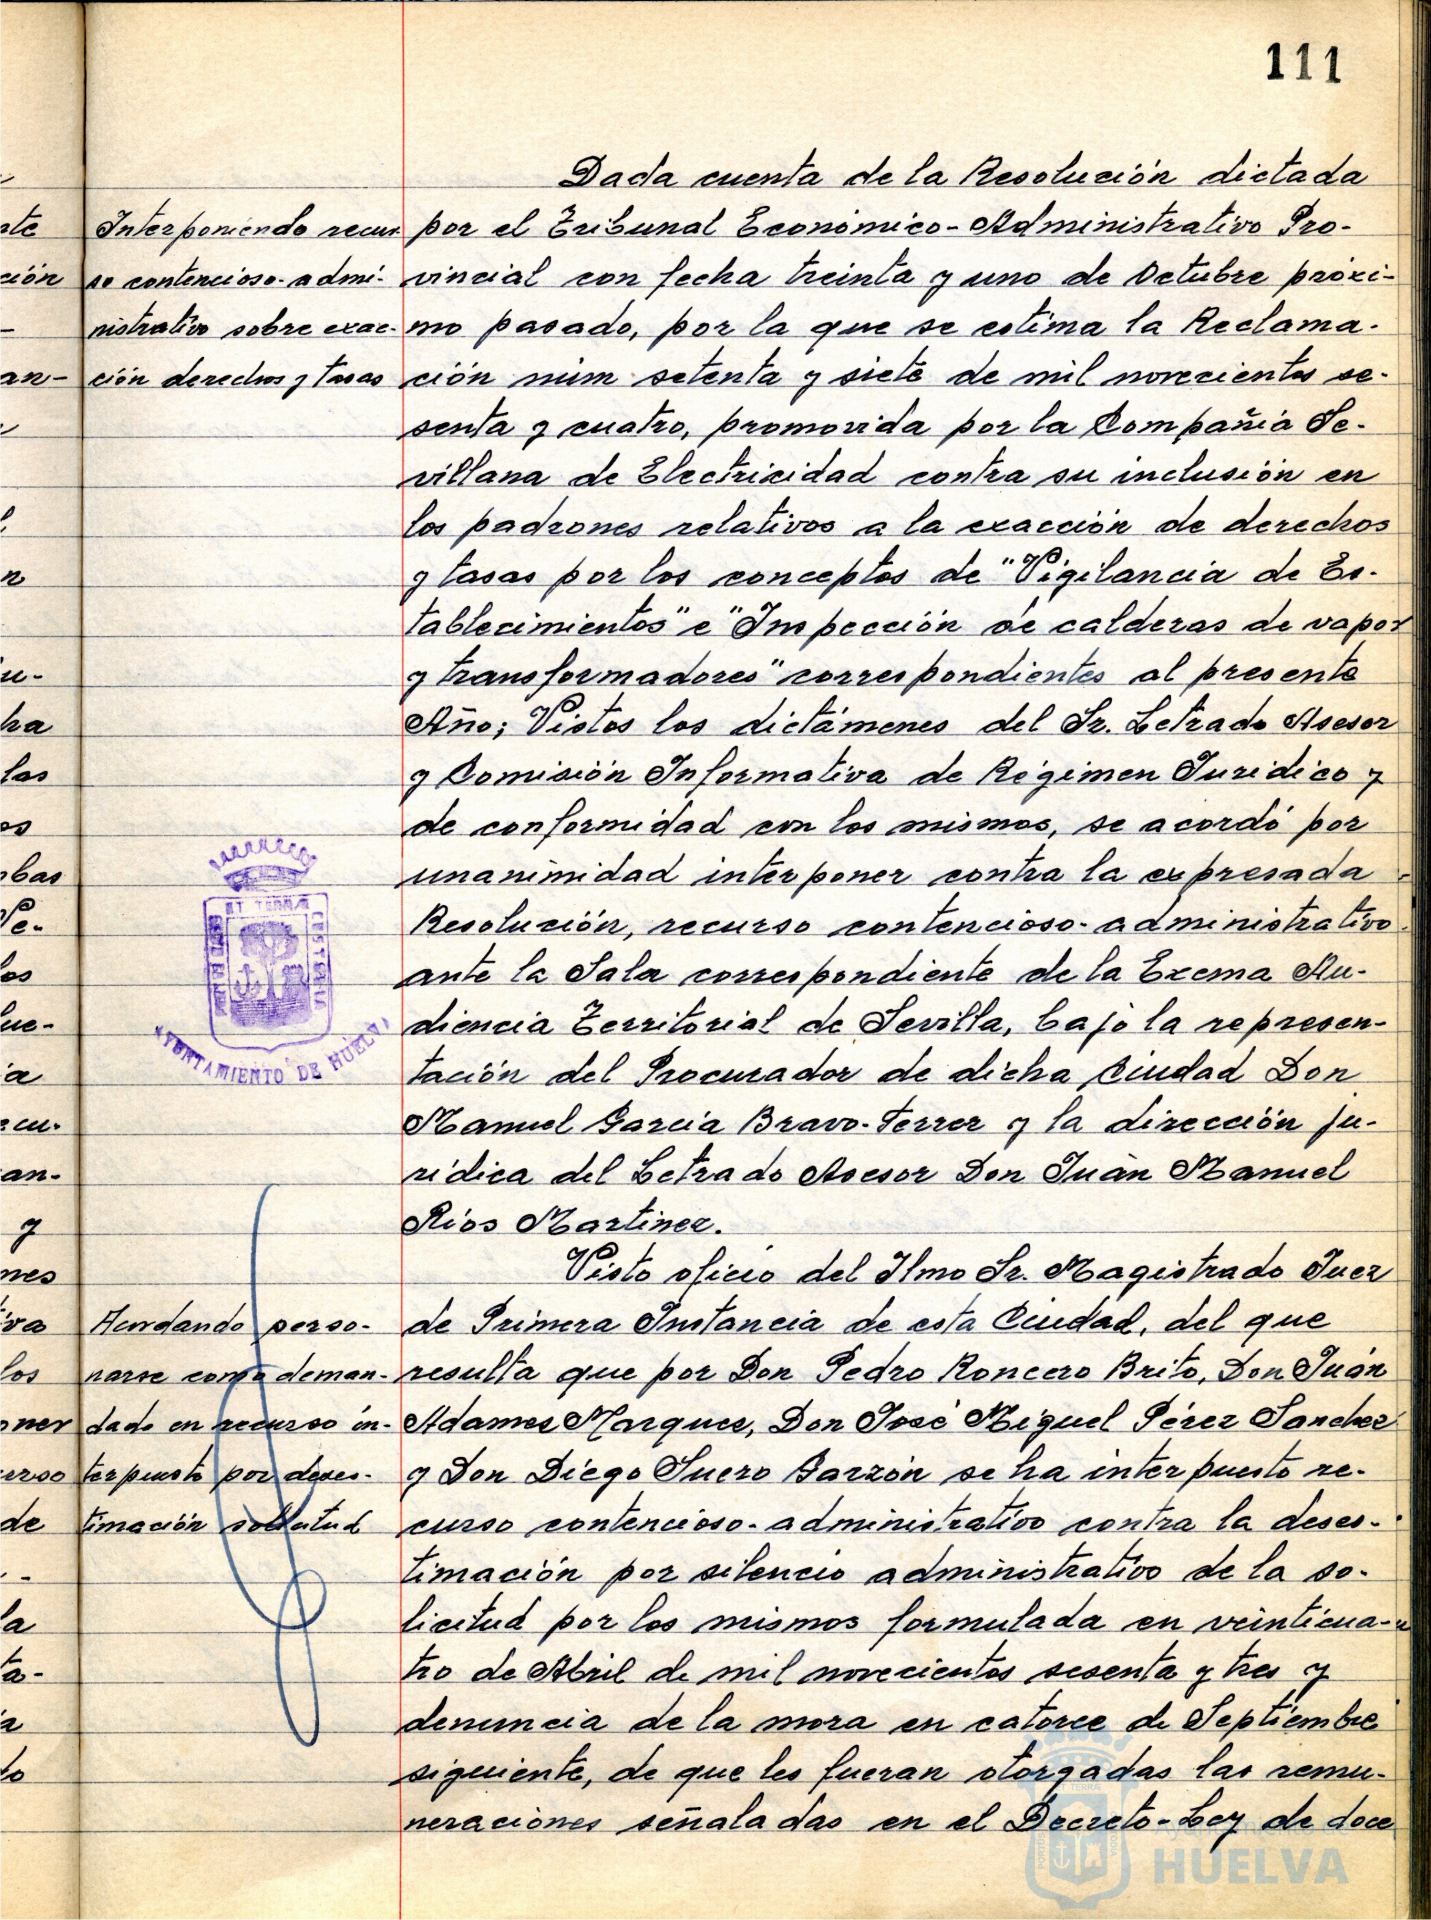 111
Dada cuenta de la Resolución dictada
Interponiendo recur-
so contencioso-admi-
nistrativo sobre exac-
ción derechos y tasas
por el Tribunal Económico-Administrativo Pro-
vincial con fecha treinta y uno de Octubre próxi-
mo pasado, por la que se estima la Reclama-
ción núm setenta y siete de mil novecientos se-
senta y cuatro, promovida por la Compañía Se-
villana de Electricidad contra su inclusión en
los padrones relativos a la exacción de derechos
y tasas por los conceptos de "Vigilancia de Es-
tablecimientos" e "Inspección de calderas de vapor
y transformadores" correspondientes al presente
Año; Vistos los dictámenes del Sr. Letrado Asesor
y Comisión Informativa de Régimen Jurídico y
de conformidad con los mismos, se acordó por
unanimidad interponer contra la expresada
Resolución, recurso contencioso-administrativo
ante la Sala correspondiente de la Excma Au-
diencia Territorial de Sevilla, bajo la represen-
tación del Procurador de dicha Ciudad Don
Manuel García Bravo-Ferrer y la dirección ju-
rídica del Letrado Asesor Don Juan Manuel
Ríos Martinez.
AYUNTAMIENTO DE HUELVA
Visto oficio del Ilmo Sr. Magistrado Juez
Acordando perso-
narse como deman-
dado en recurso in-
terpuesto por deses-
timación solicitud
de Primera Instancia de esta Ciudad, del que
resulta que por Don Pedro Roncero Brito, Don Juán
Adames Marques, Don José Miguel Pérez Sanchez
y Don Diego Suero Garzón se ha interpuesto re-
curso contencioso-administrativo contra la deses-
timación por silencio administrativo de la so-
licitud por los mismos formulada en veinticua-
tro de Abril de mil novecientos sesenta y tres y
denuncia de la mora en catorce de Septiembre
siguiente, de que les fueran otorgadas las remu-
neraciones señaladas en el Decreto-Ley de doce
Ayuntamiento de
HUELVA